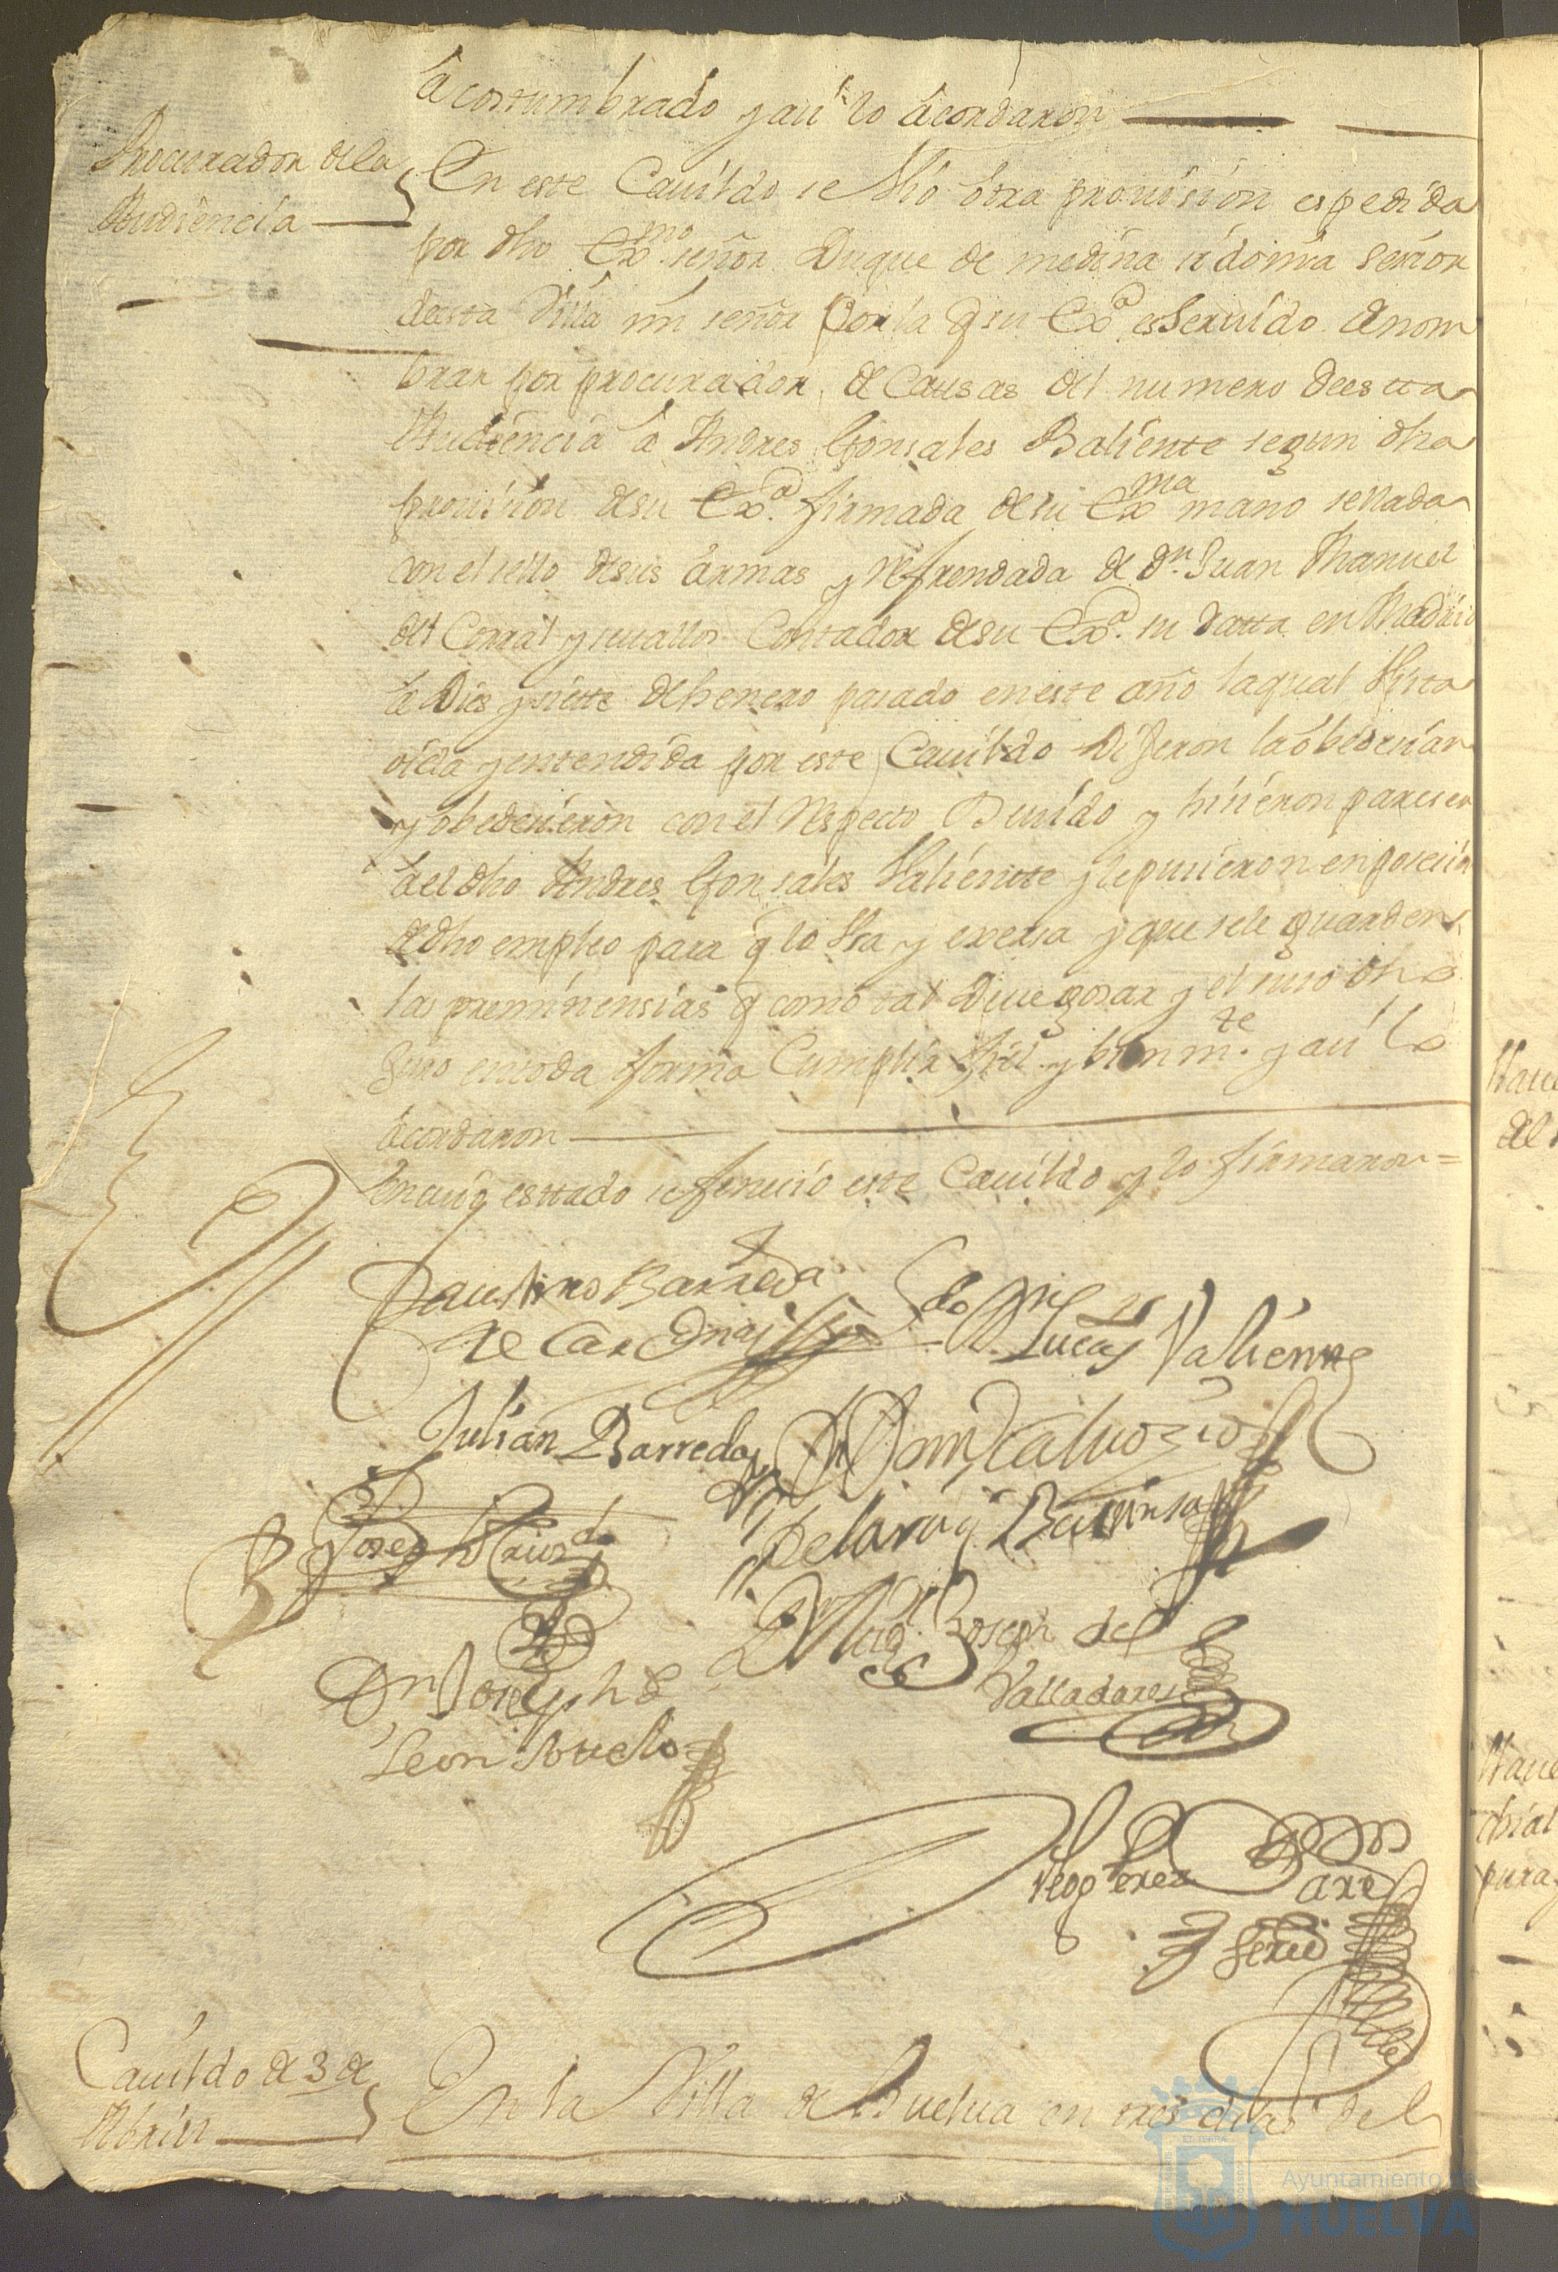 acostumbrado y así lo acordaron
Procurador de la
Audiencia
En este Cauildo se vio otra prouision espedida
por dho Exmo señor Duque de medina sidonia señor
desta Villa mi señor Por la q su Exa es Seruido a nom
brar por procurador de Causas del numero deestta
Audiencia a Andres Gonsales Baliente segun dha
prouision de su Exa firmada de su Exma mano sellada
con el sello de sus armas y refrendada de Dn Juan Manuel
del Corral y seuallos Contador de su Exa su datta en Madrid
a Dies y siette de henero pasado en este año la qual Vista
oida y entendida por este Cauildo Dijeron la obedesian
y obedesieron con el respecto Deuido y hisieron pareser
a el dho Andres Gonsales Valientte y le pusieron en posecion
de dho empleo para q lo Vsa y exersa y que se le guarden
las preminensias q como tal Deue gosar y el suso dho
Juro en toda forma Cumplir fiel y bien mte y así lo
acordaron
en cuio esttado se fenecio este Cauildo y lo firmaron =
Faustino Barreda
de Cardenas
Lucas Valiente
Julian Barreda
Joseph
Pelaruq
Dn Joseph de
Leon Sottelo
Joseph del
Valladares
Diego Perez
Cauildo de 3 de
Abril
En la Villa de Huelua en tres dias del
Ayuntamiento de
HUELVA